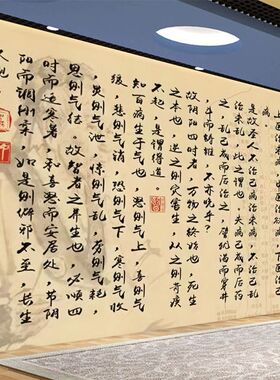 是故圣人不治已病治未病，不治已乱
治未乱，此之谓也。夫病已成而后药
之，乱已成而后治之，譬犹渴而穿井
，斗而铸锥，不亦晚乎？
故阴阳四时者，万物之终始也，死生
之本也，逆之则灾害生，从之则苛疾
不起，是谓得道。
知百病生于气也，怒则气上，喜则气
缓，悲则气消，恐则气下，寒则气收
，炅则气泄，惊则气乱，劳则气耗，
思则气结。故智者之养生也，必顺四
时而适寒暑，和喜怒而安居处，节阴
阳而调刚柔，如是则僻邪不至，长生
久视。